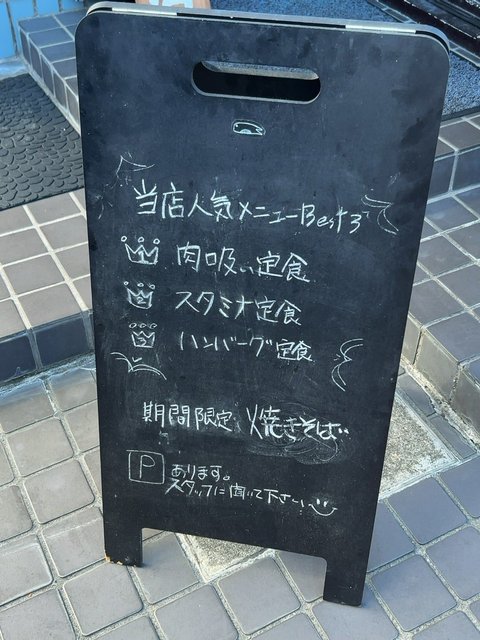 当店人気メニューBest3
1 肉吸い定食
2 スタミナ定食
3 ハンバーグ定食
期間限定 焼きそば
P あります。
スタッフに聞いて下さい